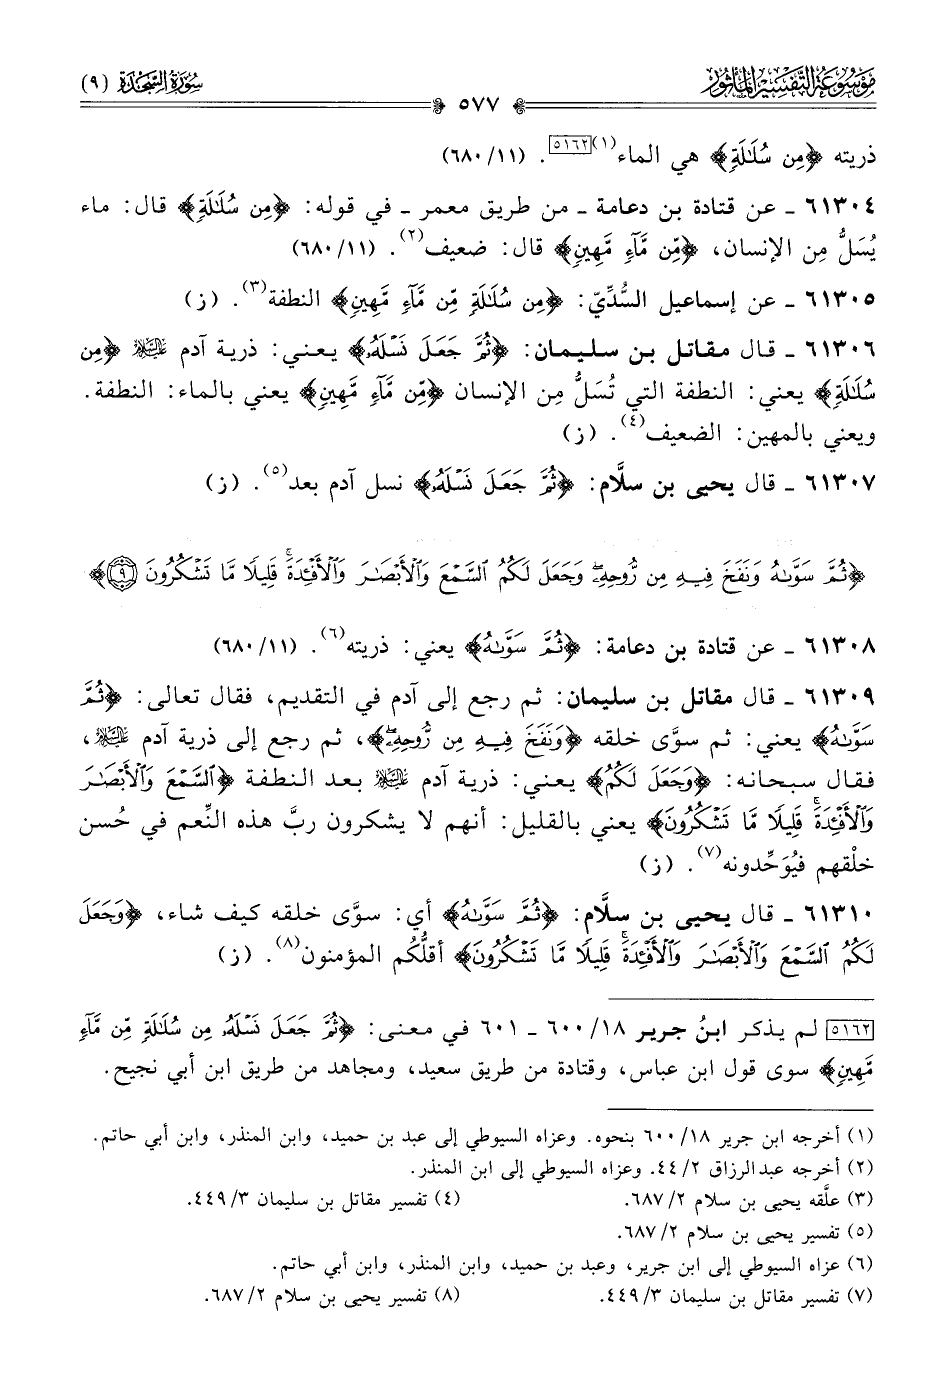 مَوْسُوعَةُ التَّفْسِيرِ المَأْثُور
سُورَةُ السَّجْدَةِ (٩)
٥٧٧
ذريته ﴿مِن سُلَٰلَةٖ﴾ هي الماء(١)[٥١٦٢]. (٦٨٠/١١)
٦١٣٠٤ ـ عن قتادة بن دعامة ـ من طريق معمر ـ في قوله: ﴿مِن سُلَٰلَةٖ﴾ قال: ماء
يُسَلُّ مِن الإنسان، ﴿مِّن مَّآءٖ مَّهِينٖ﴾ قال: ضعيف(٢). (٦٨٠/١١)
٦١٣٠٥ ـ عن إسماعيل السُّدِّيّ: ﴿مِن سُلَٰلَةٖ مِّن مَّآءٖ مَّهِينٖ﴾ النطفة(٣). (ز)
٦١٣٠٦ ـ قال مقاتل بن سليمان: ﴿ثُمَّ جَعَلَ نَسۡلَهُۥ﴾ يعني: ذرية آدم عليه السلام ﴿مِن
سُلَٰلَةٖ﴾ يعني: النطفة التي تُسَلُّ مِن الإنسان ﴿مِّن مَّآءٖ مَّهِينٖ﴾ يعني بالماء: النطفة.
ويعني بالمهين: الضعيف(٤). (ز)
٦١٣٠٧ ـ قال يحيى بن سلَّام: ﴿ثُمَّ جَعَلَ نَسۡلَهُۥ﴾ نسل آدم بعد(٥). (ز)
﴿ثُمَّ سَوَّىٰهُ وَنَفَخَ فِيهِ مِن رُّوحِهِۦۖ وَجَعَلَ لَكُمُ ٱلسَّمۡعَ وَٱلۡأَبۡصَٰرَ وَٱلۡأَفۡـِٔدَةَۚ قَلِيلٗا مَّا تَشۡكُرُونَ ٩﴾
٦١٣٠٨ ـ عن قتادة بن دعامة: ﴿ثُمَّ سَوَّىٰهُ﴾ يعني: ذريته(٦). (٦٨٠/١١)
٦١٣٠٩ ـ قال مقاتل بن سليمان: ثم رجع إلى آدم في التقديم، فقال تعالى: ﴿ثُمَّ
سَوَّىٰهُ﴾ يعني: ثم سوَّى خلقه ﴿وَنَفَخَ فِيهِ مِن رُّوحِهِۦۖ﴾، ثم رجع إلى ذرية آدم عليه السلام،
فقال سبحانه: ﴿وَجَعَلَ لَكُمُ﴾ يعني: ذرية آدم عليه السلام بعد النطفة ﴿ٱلسَّمۡعَ وَٱلۡأَبۡصَٰرَ
وَٱلۡأَفۡـِٔدَةَۚ قَلِيلٗا مَّا تَشۡكُرُونَ﴾ يعني بالقليل: أنهم لا يشكرون ربَّ هذه النِّعم في حُسن
خلْقهم فيُوَحِّدونه(٧). (ز)
٦١٣١٠ ـ قال يحيى بن سلَّام: ﴿ثُمَّ سَوَّىٰهُ﴾ أي: سوَّى خلقه كيف شاء، ﴿وَجَعَلَ
لَكُمُ ٱلسَّمۡعَ وَٱلۡأَبۡصَٰرَ وَٱلۡأَفۡـِٔدَةَۚ قَلِيلٗا مَّا تَشۡكُرُونَ﴾ أقلُّكُم المؤمنون(٨). (ز)
[٥١٦٢] لم يذكر ابنُ جرير ١٨/ ٦٠٠ ـ ٦٠١ في معنى: ﴿ثُمَّ جَعَلَ نَسۡلَهُۥ مِن سُلَٰلَةٖ مِّن مَّآءٖ
مَّهِينٖ﴾ سوى قول ابن عباس، وقتادة من طريق سعيد، ومجاهد من طريق ابن أبي نجيح.
(١) أخرجه ابن جرير ١٨/ ٦٠٠ بنحوه. وعزاه السيوطي إلى عبد بن حميد، وابن المنذر، وابن أبي حاتم.
(٢) أخرجه عبدالرزاق ٢/ ٤٤. وعزاه السيوطي إلى ابن المنذر.
(٣) علَّقه يحيى بن سلام ٢/ ٦٨٧. (٤) تفسير مقاتل بن سليمان ٣/ ٤٤٩.
(٥) تفسير يحيى بن سلام ٢/ ٦٨٧.
(٦) عزاه السيوطي إلى ابن جرير، وعبد بن حميد، وابن المنذر، وابن أبي حاتم.
(٧) تفسير مقاتل بن سليمان ٣/ ٤٤٩. (٨) تفسير يحيى بن سلام ٢/ ٦٨٧.